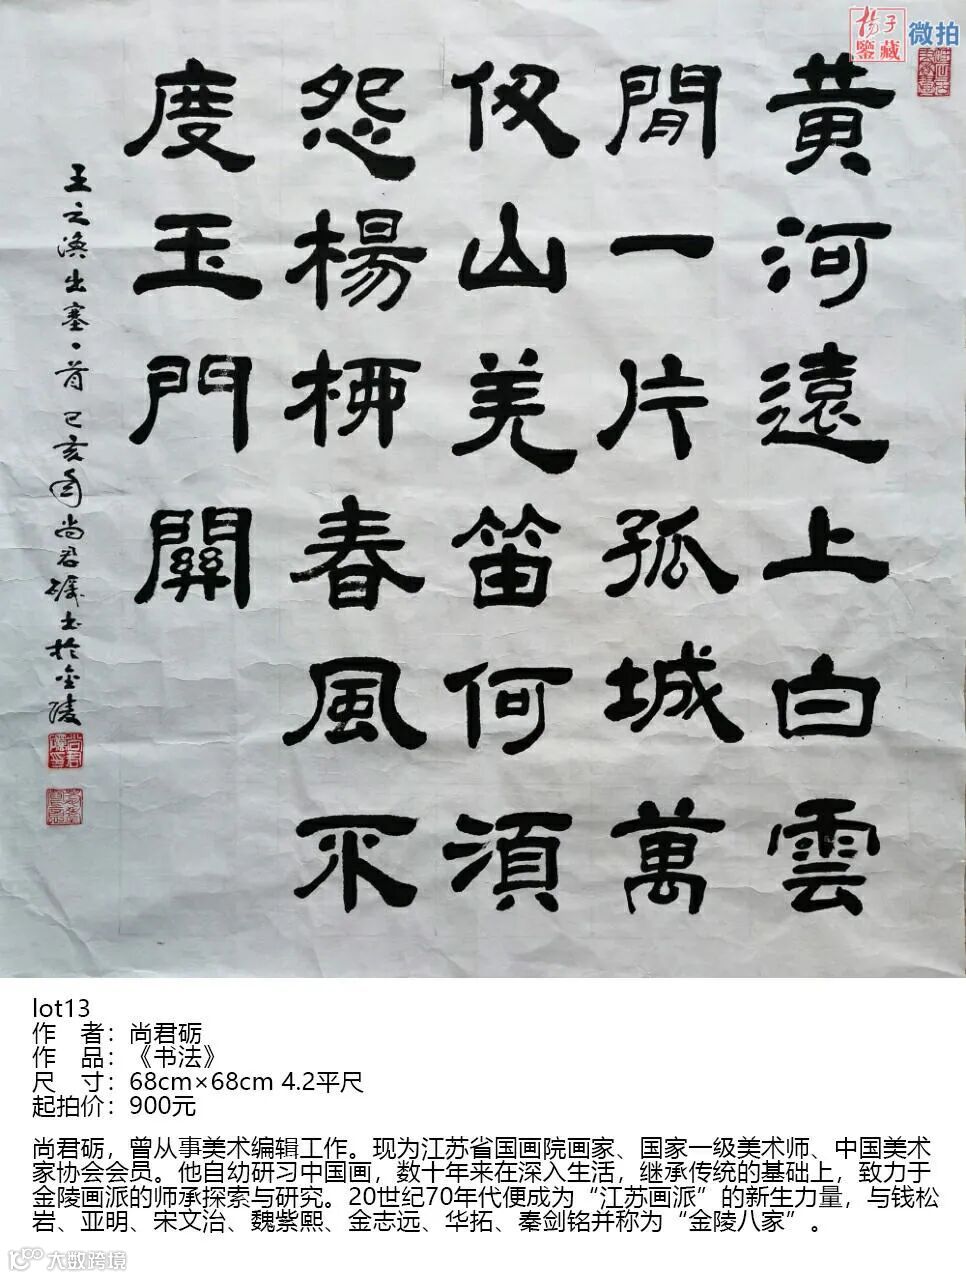 揚子
鑒藏
微拍
黃河遠上白雲
間一片孤城萬
仞山羌笛何須
怨楊柳春風不
度玉門關
王之渙出塞一首己亥年尚君礪書於金陵
lot13
作 者：尚君砺
作 品：《书法》
尺 寸：68cm×68cm 4.2平尺
起拍价：900元
尚君砺，曾从事美术编辑工作。现为江苏省国画院画家、国家一级美术师、中国美术
家协会会员。他自幼研习中国画，数十年来在深入生活，继承传统的基础上，致力于
金陵画派的师承探索与研究。20世纪70年代便成为“江苏画派”的新生力量，与钱松
岩、亚明、宋文治、魏紫熙、金志远、华拓、秦剑铭并称为“金陵八家”。
大数跨境